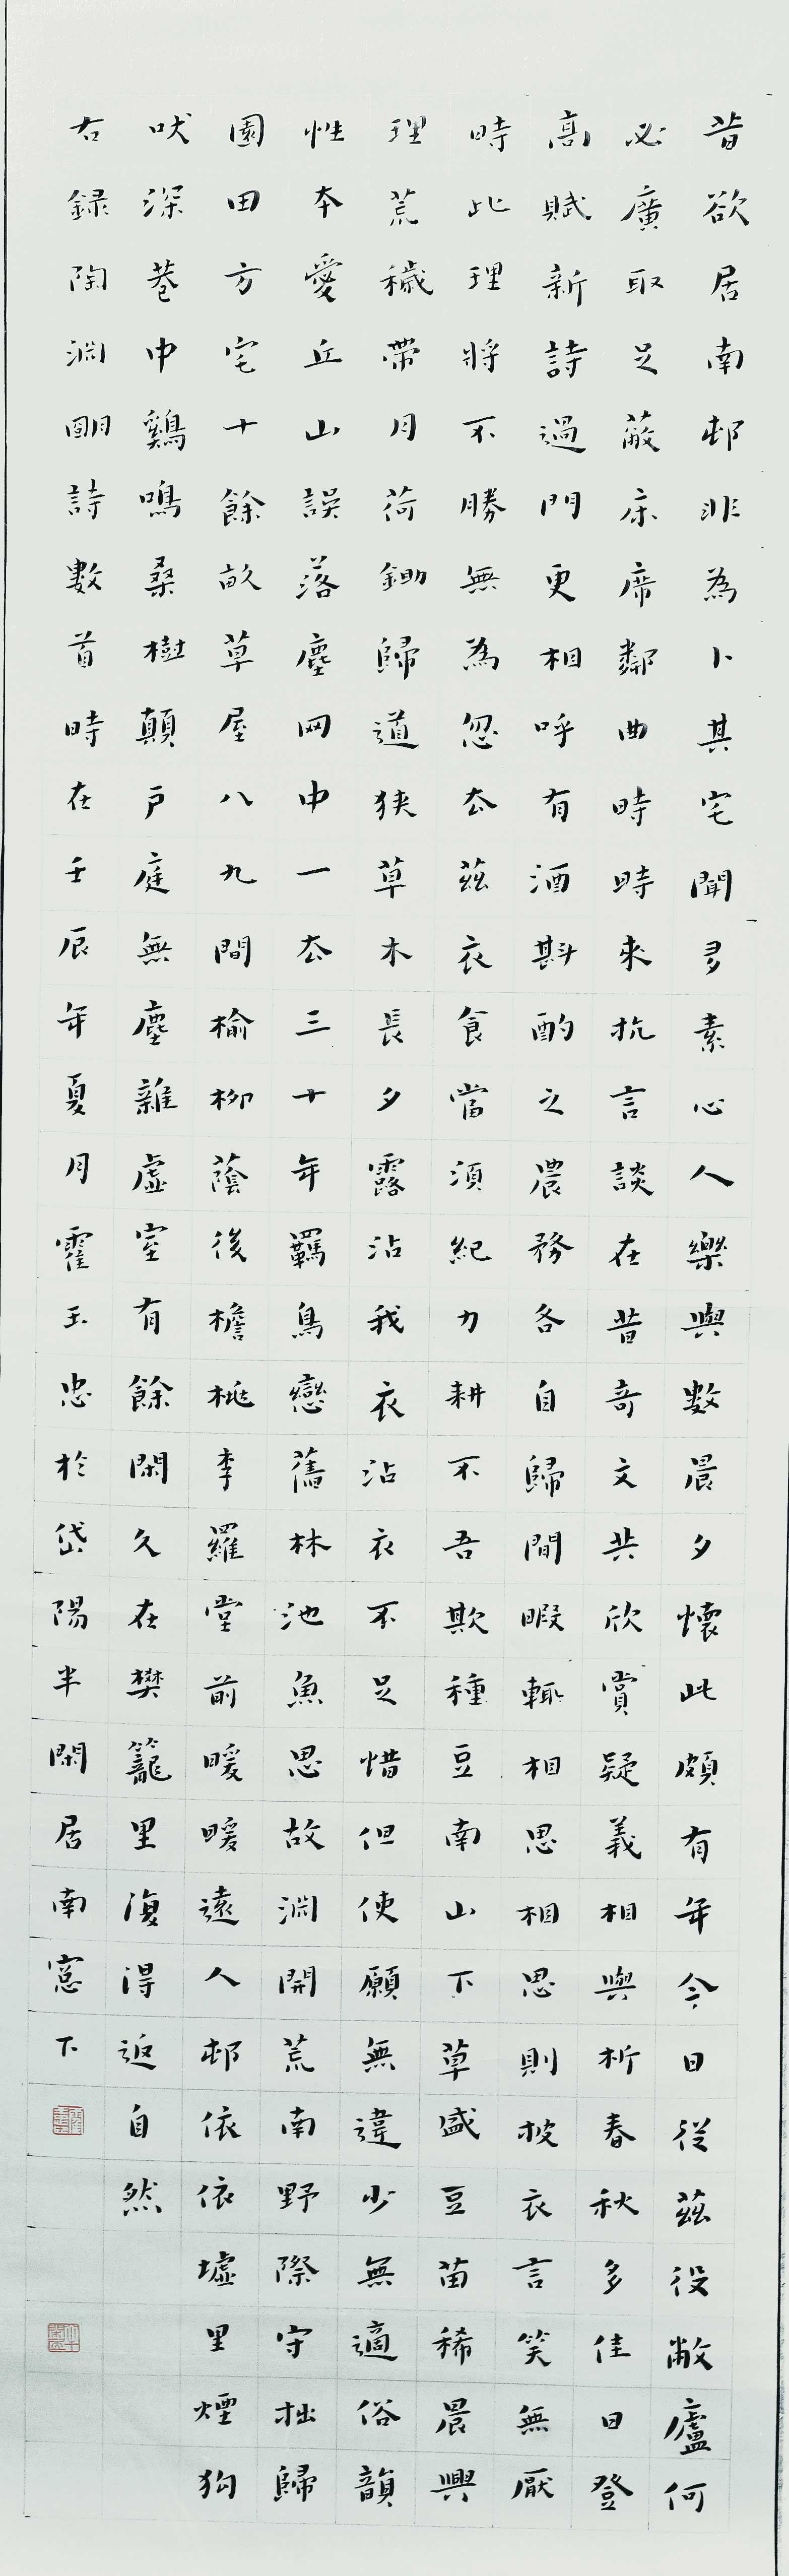 昔欲居南邨非為卜其宅聞多素心人樂與數晨夕懷此頗有年今日從茲役敝廬何
必廣取足蔽床席鄰曲時時來抗言談在昔奇文共欣賞疑義相與析春秋多佳日登
高賦新詩過門更相呼有酒斟酌之農務各自歸間暇輒相思相思則披衣言笑無厭
時此理將不勝無為忽去茲衣食當須紀力耕不吾欺種豆南山下草盛豆苗稀晨興
理荒穢帶月荷鋤歸道狹草木長夕露沾我衣沾衣不足惜但使願無違少無適俗韻
性本愛丘山誤落塵网中一去三十年羈鳥戀舊林池魚思故淵開荒南野際守拙歸
園田方宅十餘畝草屋八九間榆柳蔭後檐桃李羅堂前暖暖遠人邨依依墟里煙狗
吠深巷中鷄鳴桑樹顛戶庭無塵雜虛室有餘閑久在樊籠里復得返自然
右錄陶淵明詩數首時在壬辰年夏月霍玉忠於岱陽半閑居南窗下